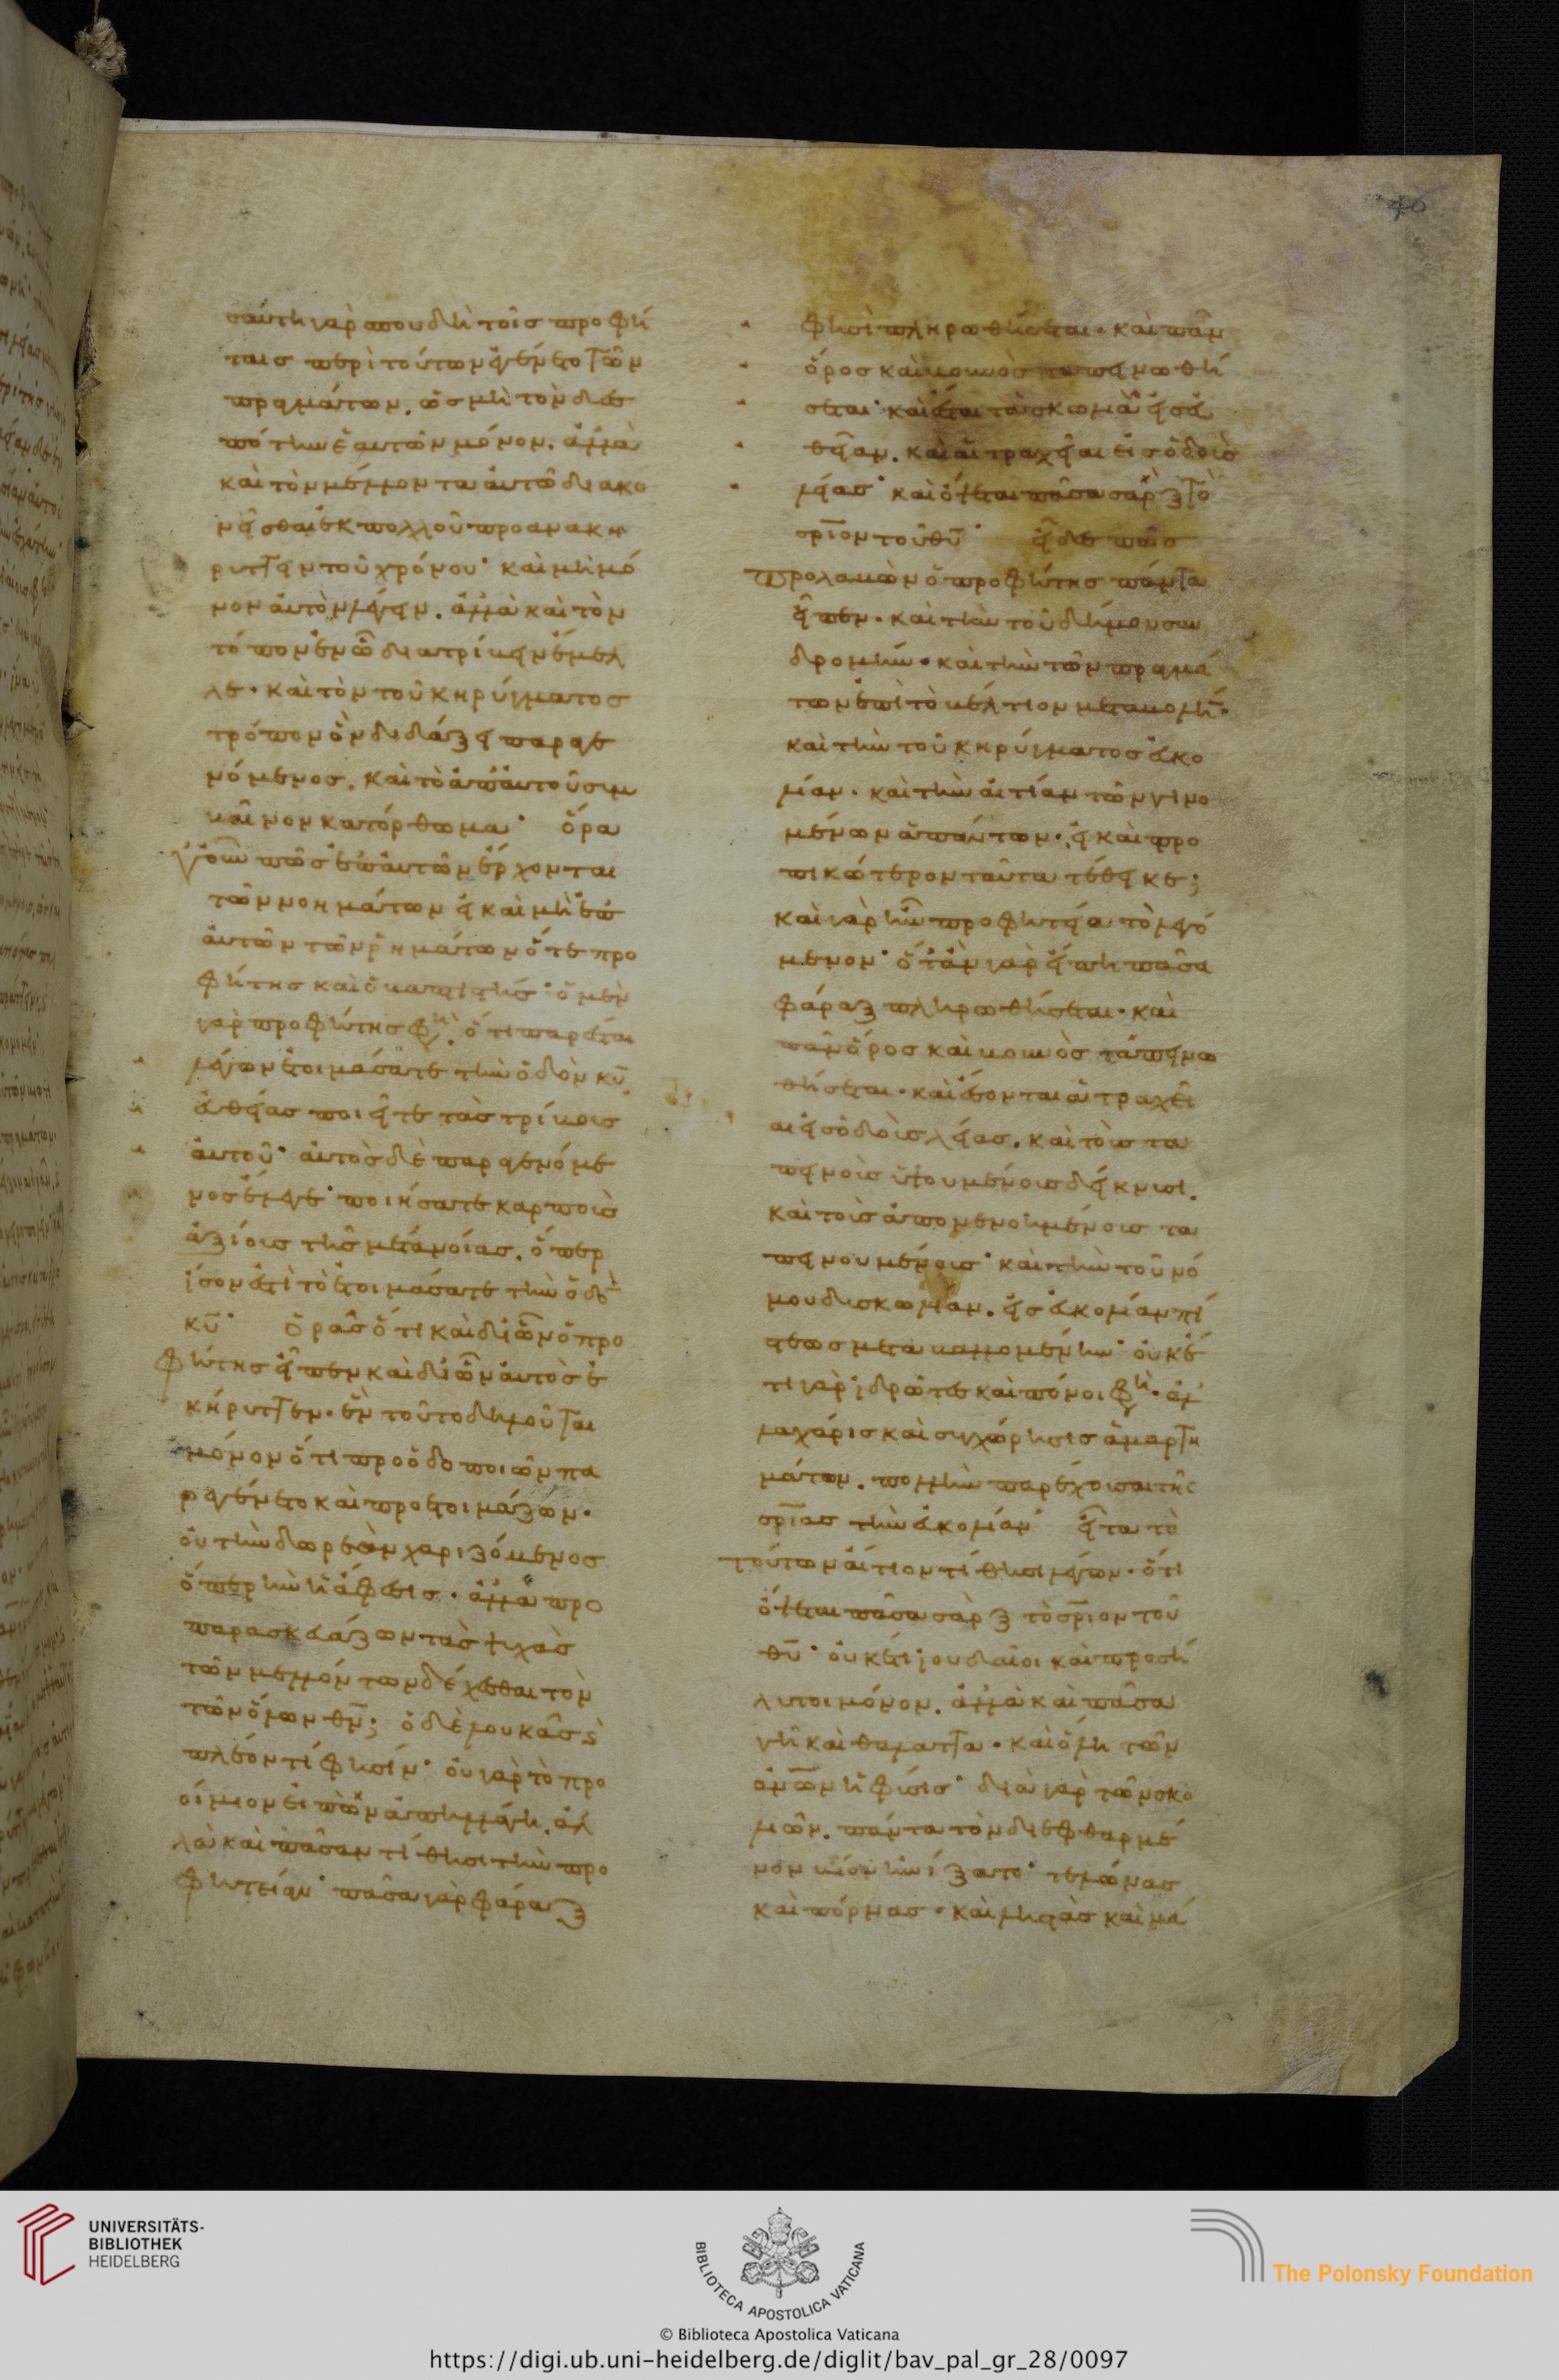 σαύτη γὰρ σπουδὴ τοῖς προφή
ταις περὶ τούτων ἐγένετο τῶν
πραγμάτων. ὡς μὴ τὸν δεσ
πότην ἑαυτῶν μόνον. ἀλλὰ
καὶ τὸν μέλλοντα αὐτῶ διακο
νεῖσθαι ἐκ πολλοῦ προανακη
ρύττειν τοῦ χρόνου· καὶ μὴ μό
νον αὐτὸν λέγειν. ἀλλὰ καὶ τὸν
τόπον ἐν ὧ διατρίβειν ἔμελ
λε· καὶ τὸν τοῦ κηρύγματος
τρόπον ὃν διδάξει παραγε
νόμενος. καὶ τὸ ἀπ' αὐτοῦ συμ
βαῖνον κατόρθωμα· ὅρα
γοῦν πῶς ἐπ' αὐτῶν ἔρχονται
τῶν νοημάτων εἰ καὶ μὴ ἐπ'
αὐτῶν τῶν ῥημάτων ὅτε προ
φήτης καὶ ὁ βαπτιστής· ὁ μὲν
γὰρ προφήτης φη ὅτι παρέσται
λέγων ἑτοιμάσατε τὴν ὁδὸν κ̅υ̅.
εὐθείας ποιεῖτε τὰς τρίβους
αὐτοῦ· αὐτὸς δὲ παραγενόμε
νος ἔλεγε· ποιήσατε καρποὺς
ἀξίους τῆς μετανοίας. ὅπερ
ἴσον ἐστὶ τὸ ἑτοιμάσατε τὴν ὁδὸ
κ̅υ̅· ὁρᾶς ὅτι καὶ δι' ὧν ὁ προ
φήτης εἶπεν καὶ δι' ὧν αὐτὸς ἐ
κήρυττεν. ἓν τοῦτο δηλοῦται
μόνον ὅτι προοδοποιῶν πα
ρεγένετο καὶ προετοιμάζων·
οὐ τὴν δωρεὰν χαριζόμενος
ὅπερ ἦν ἡ ἄφεσις. ἀλλὰ προ
παρασκευάζων τὰς ψυχὰς
τῶν μελλόντων δέχεσθαι τὸν
τῶν ὅλων θ̅ν̅; ὁ δὲ λουκᾶς
πλέον τί φησίν· οὐ γὰρ τὸ προ
οίμιον εἰπὼν ἀπηλλάγη. ἀλ
λὰ καὶ πᾶσαν τίθησι τὴν προ
φητείαν· πᾶσα γὰρ φάραξ
φησὶ πληρωθήσεται. καὶ πᾶν
ὄρος καὶ βουνὸς ταπεινωθή
σεται· καὶ ἔσται τὰ σκολιὰ εἰς εὐ
θεῖαν. καὶ αἱ τραχεῖαι εἰς ὁδοὺς
λείας· καὶ ὄψεται πᾶσα σὰρξ τὸ
σ̅ρ̅ιον τοῦ θ̅υ̅· εἶδες πῶς
προλαβὼν ὁ προφήτης πάντα
εἶπεν. καὶ τὴν τοῦ δήμου συν
δρομήν. καὶ τὴν τῶν πραγμά
των ἐπὶ τὸ βέλτιον μεταβολήν.
καὶ τὴν τοῦ κηρύγματος εὐκο
λίαν. καὶ τὴν αἰτίαν τῶν γινο
μένων ἁπάντων. εἰ καὶ τρο
πικώτερον ταῦτα τέθεικε;
καὶ γὰρ ἦν προφητεία τὸ λεγό
μενον· ὅταν γὰρ εἴπη πᾶσα
φάραξ πληρωθήσεται. καὶ
πᾶν ὄρος καὶ βουνὸς ταπεινω
θήσεται. καὶ ἔσονται αἱ τραχεῖ
αι εἰς ὁδοὺς λείας. καὶ τοὺς τα
πεινοὺς ὑψουμένους δείκνυσι.
καὶ τοὺς ἀπονενοημένους τα
πεινουμένους· καὶ τὴν τοῦ νό
μου δυσκολίαν. εἰς εὐκολίαν πί
στεως μεταβαλλομένην· οὐκέ
τι γὰρ ἱδρῶτες καὶ πόνοι φη. ἀλ
λα χάρις καὶ συγχώρησις ἁμαρτη
μάτων. πολλὴν παρέχουσα τῆς
σ̅ρ̅ιας τὴν εὐκολίαν· εἶτα τὸ
τούτων αἴτιον τίθησι λέγων. ὅτι
ὄψεται πᾶσα σὰρξ τὸ σ̅ρ̅ιον τοῦ
θ̅υ̅· οὐκέτι ἰουδαῖοι καὶ προσή
λυτοι μόνον. ἀλλὰ καὶ πᾶσα
γῆ καὶ θάλαττα. καὶ ὅλη τῶν
α̅ν̅ων ἡ φύσις· διὰ γὰρ τῶν σκο
λιῶν. πάντα τὸν διεφθαρμέ
νον βίον ἠνίξατο· τελώνας
καὶ πόρνας. καὶ ληστὰς καὶ μά